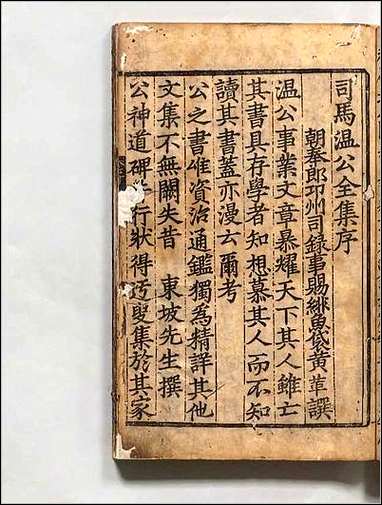 司馬温公全集序
朝奉郎卭州司録事賜緋魚袋黄革譔
温公事業文章暴耀天下其人雖亡
其書具存學者知想慕其人而不知
讀其書蓋亦漫云爾考
公之書惟資治通鑑獨為精詳其他
文集不無闕失昔　東坡先生撰
公神道碑行狀得迃叟集於其家